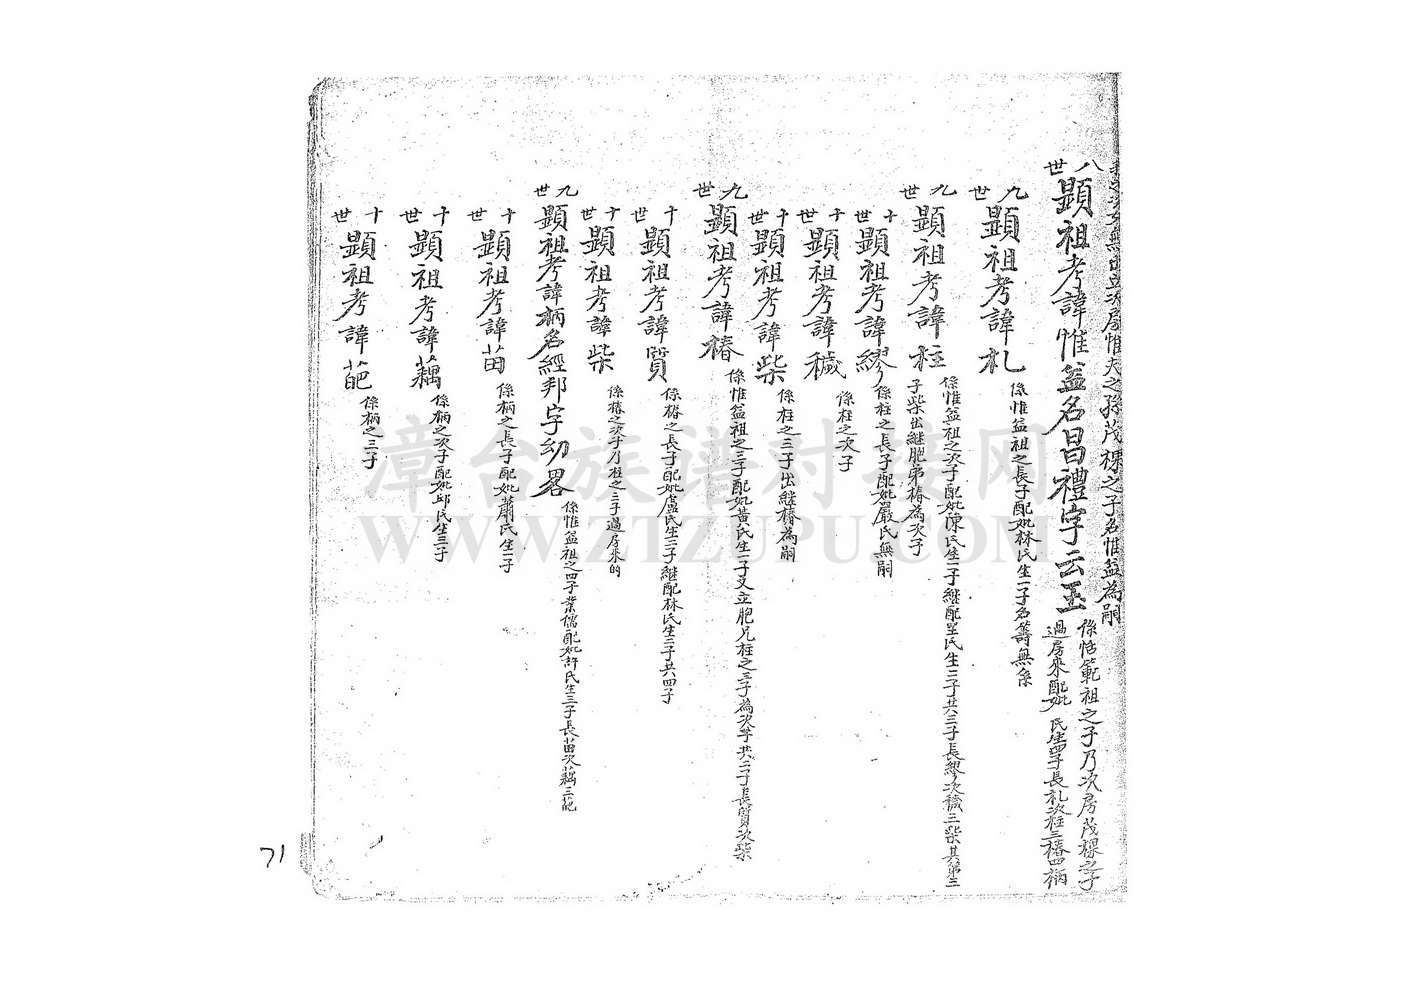 無出立次房惟夫之孫茂棵之子名惟益為嗣
八世
顕祖考諱惟益名昌禮字云玉
係恬範祖之子乃次房茂棵之子
過房來配妣 氏生四子長札次柱三椿四柄
九世
顕祖考諱札
係惟益祖之長子配妣林氏生一子名籌無係
九世
顕祖考諱柱
係惟益祖之次子配妣陳氏生一子継配呈氏生二子共三子長繆次穢三柴其第三
子柴出継胞弟椿為次子
十世
顕祖考諱繆
係柱之長子配妣嚴氏無嗣
十世
顕祖考諱穢
係柱之次子
十世
顕祖考諱柴
係柱之三子出継椿為嗣
九世
顕祖考諱椿
係惟益祖之三子配妣黄氏生一子又立胞兄柱之三子為次子共二子長質次柴
十世
顕祖考諱質
係椿之長子配妣盧氏生二子継配林氏生二子共四子
十世
顕祖考諱柴
係椿之次子乃柱之三子過房來的
九世
顕祖考諱柄名經邦字幼畧
係惟益祖之四子業儒配妣許氏生三子長苗次藕三葩
十世
顕祖考諱苗
係柄之長子配妣蕭氏生一子
十世
顕祖考諱藕
係柄之次子配妣邱氏生三子
十世
顕祖考諱葩
係柄之三子
71
漳台族谱对接网
WWW.ZTZUPU.COM